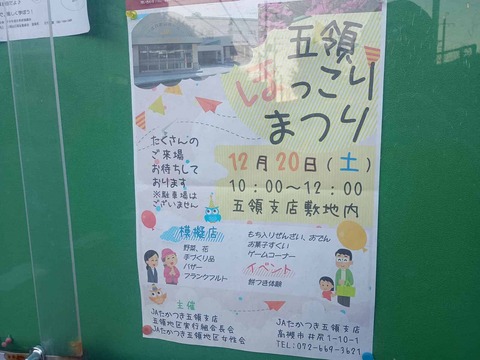 五領
ほっこり
まつり
たくさんの
ご来場
お待ちして
おります
※駐車場は
ございません
12月20日(土)
10:00～12:00
五領支店敷地内
模擬店
野菜、花
手づくり品
バザー
フランクフルト
もち入りぜんざい、おでん
お菓子すくい
ゲームコーナー
イベント
餅つき体験
主催
JAたかつき五領支店
五領地区実行組合長会
JAたかつき五領地区女性会
JAたかつき五領支店
高槻市井尻1-10-1
TEL:072-669-3621